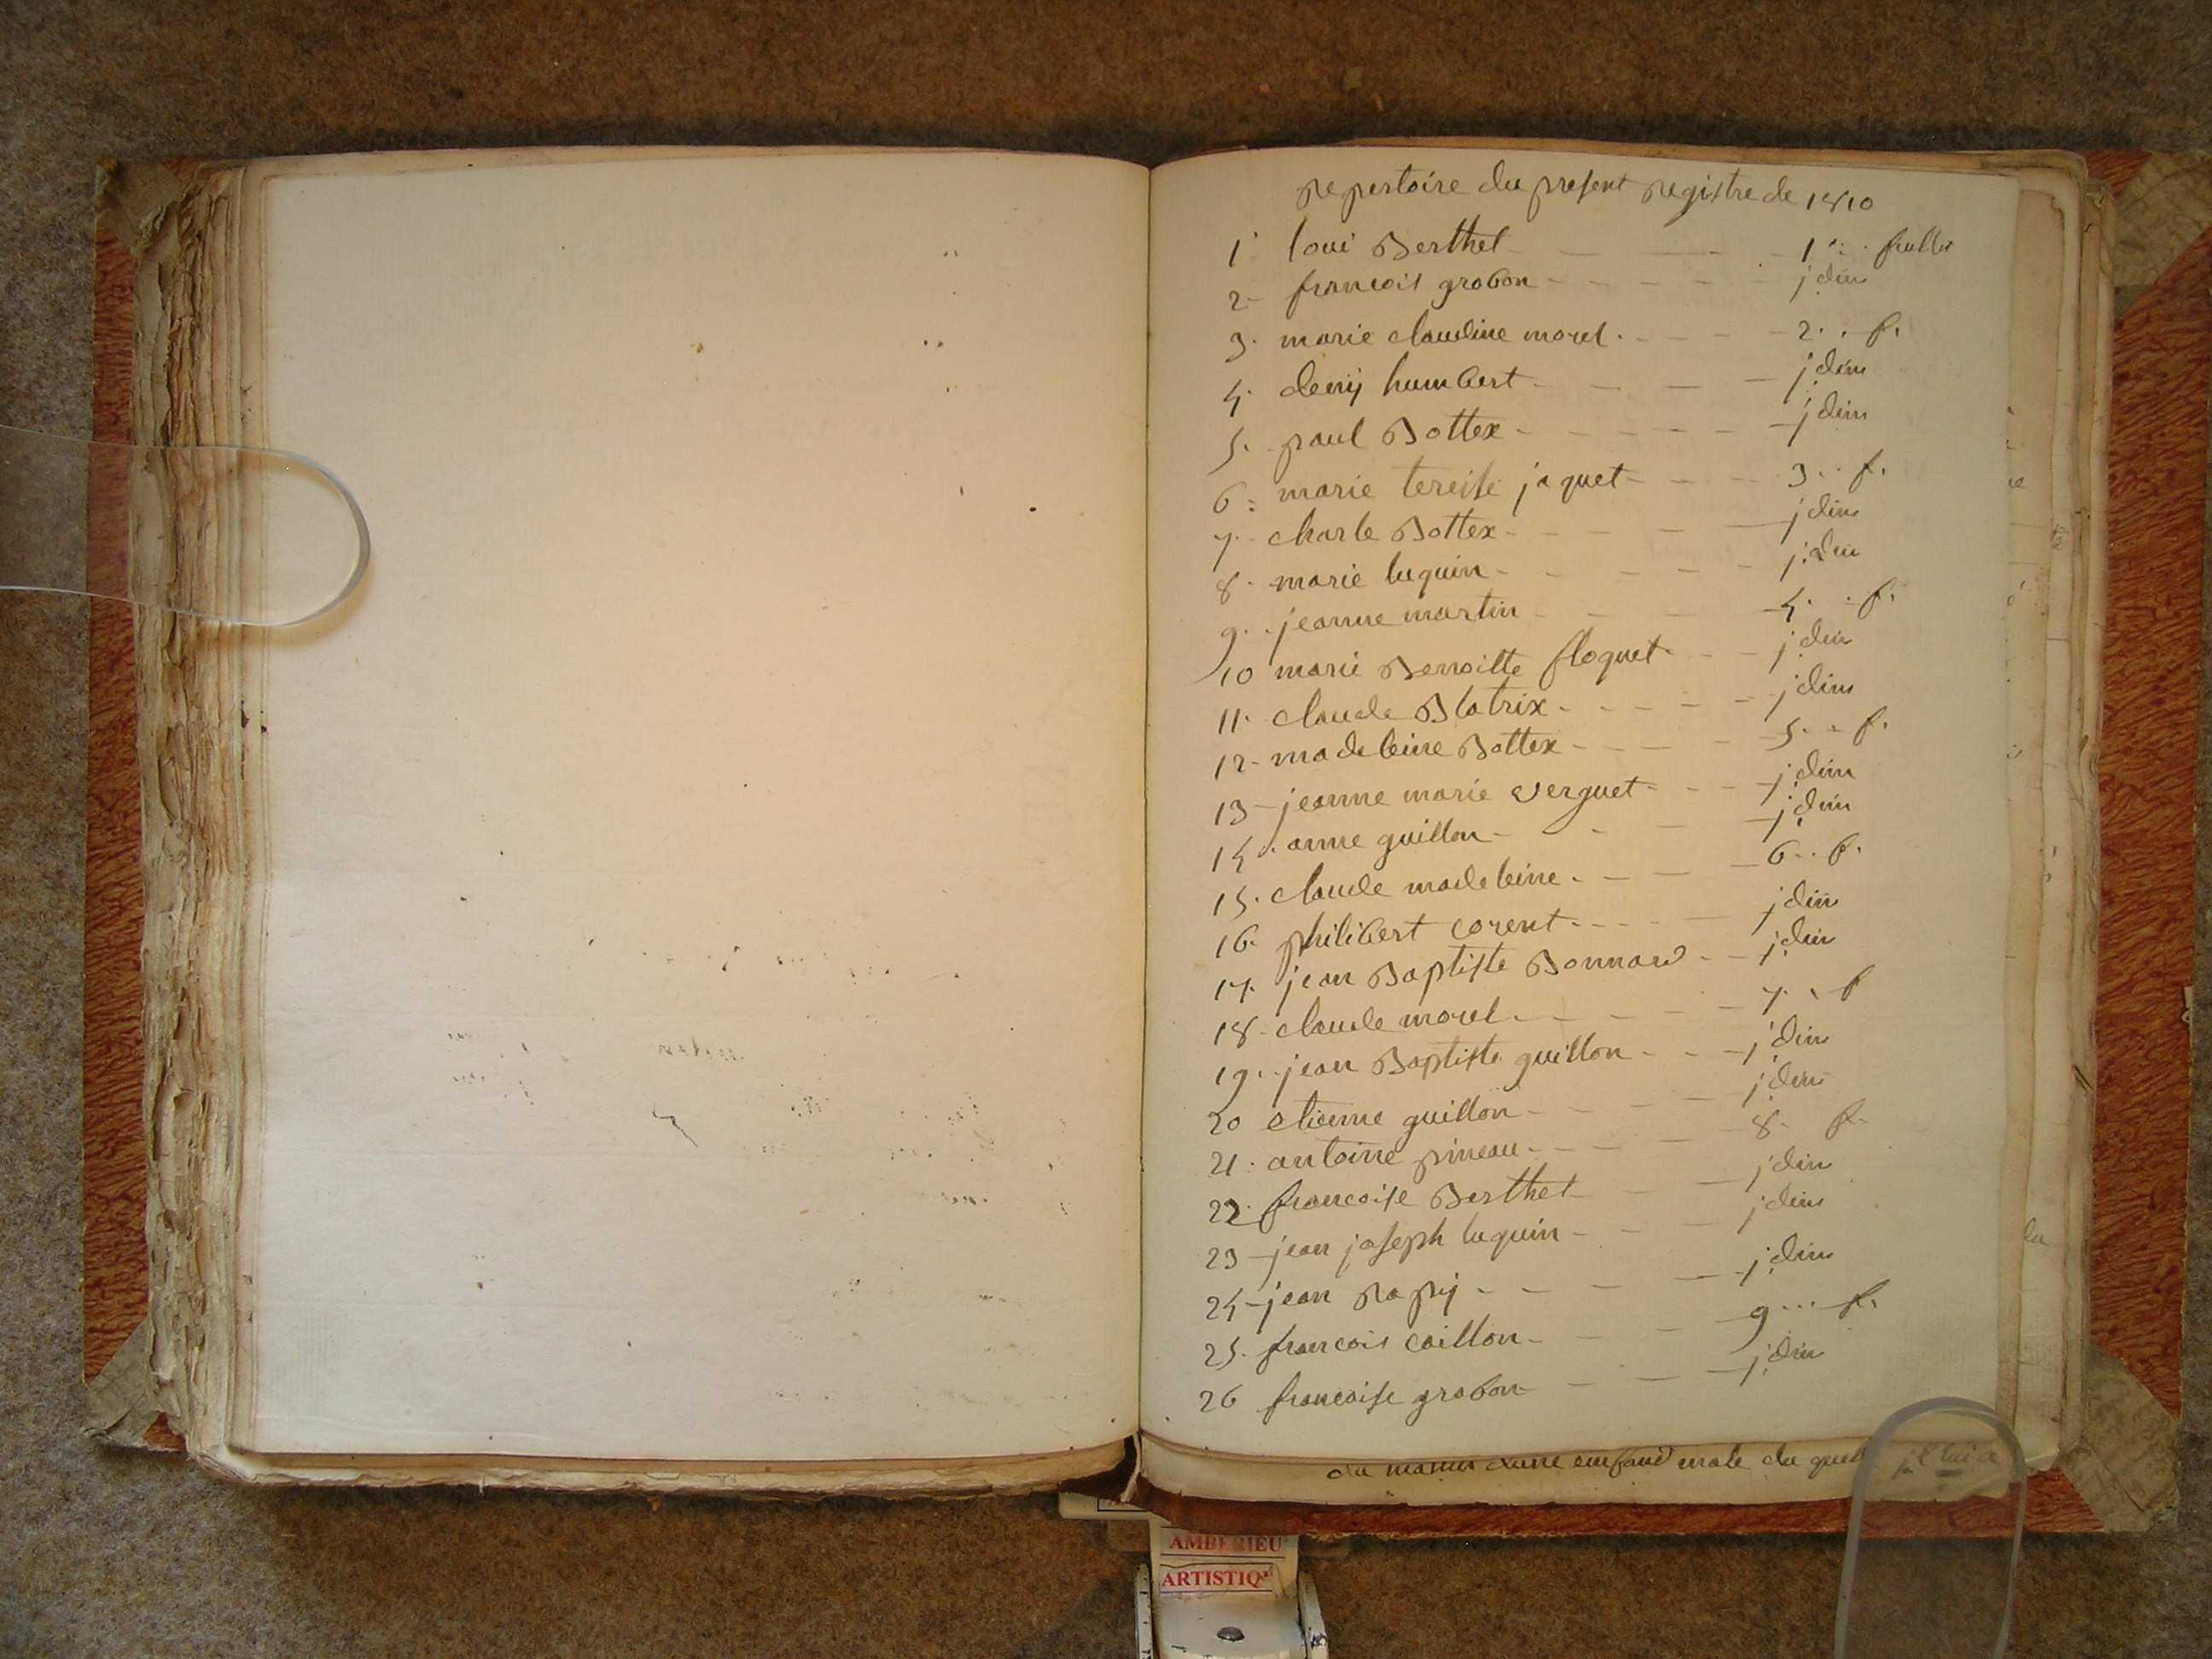 repertoire du present registre de 1810
1 loui Berthet - - - 1. feullet
2 francois grobon - - - - - jdem
3. marie claudine morel. - - - 2. f.
4. denij humbert - - - - jdem
5. paul Bottex - - - - - jdem
6. marie tereise jaquet - - - 3. f.
7. charle Bottex - - - - - jdem
8. marie luquin - - - - - jdem
9. jeanne martin - - - - 4. f.
10 marie Benoitte floquet - - - jdem
11. claude Blatrix. - - - - - jdem
12 - madeleine Bottex - - - - 5. f.
13 - jeanne marie verguet - - - jdem
14. anne guillon - - - - jdem
15. claude madeleine. - - - 6. f.
16. philibert corent. - - - - jdem
17. jean Baptiste Bonnard - - jdem
18 - claude morel. - - - - 7. f
19. jean Baptiste guillon - - - jdem
20 etienne guillon - - - - jdem
21. antoine pineau. - - - 8. f.
22. francoise Berthet - - - jdem
23 - jean joseph luquin - - - jdem
24 - jean papij - - - - - jdem
25. francois caillon - - - 9. f.
26 francoise grobon - - - - jdem
enfand male du quel jl lui a
AMBERIEU
ARTISTIQ